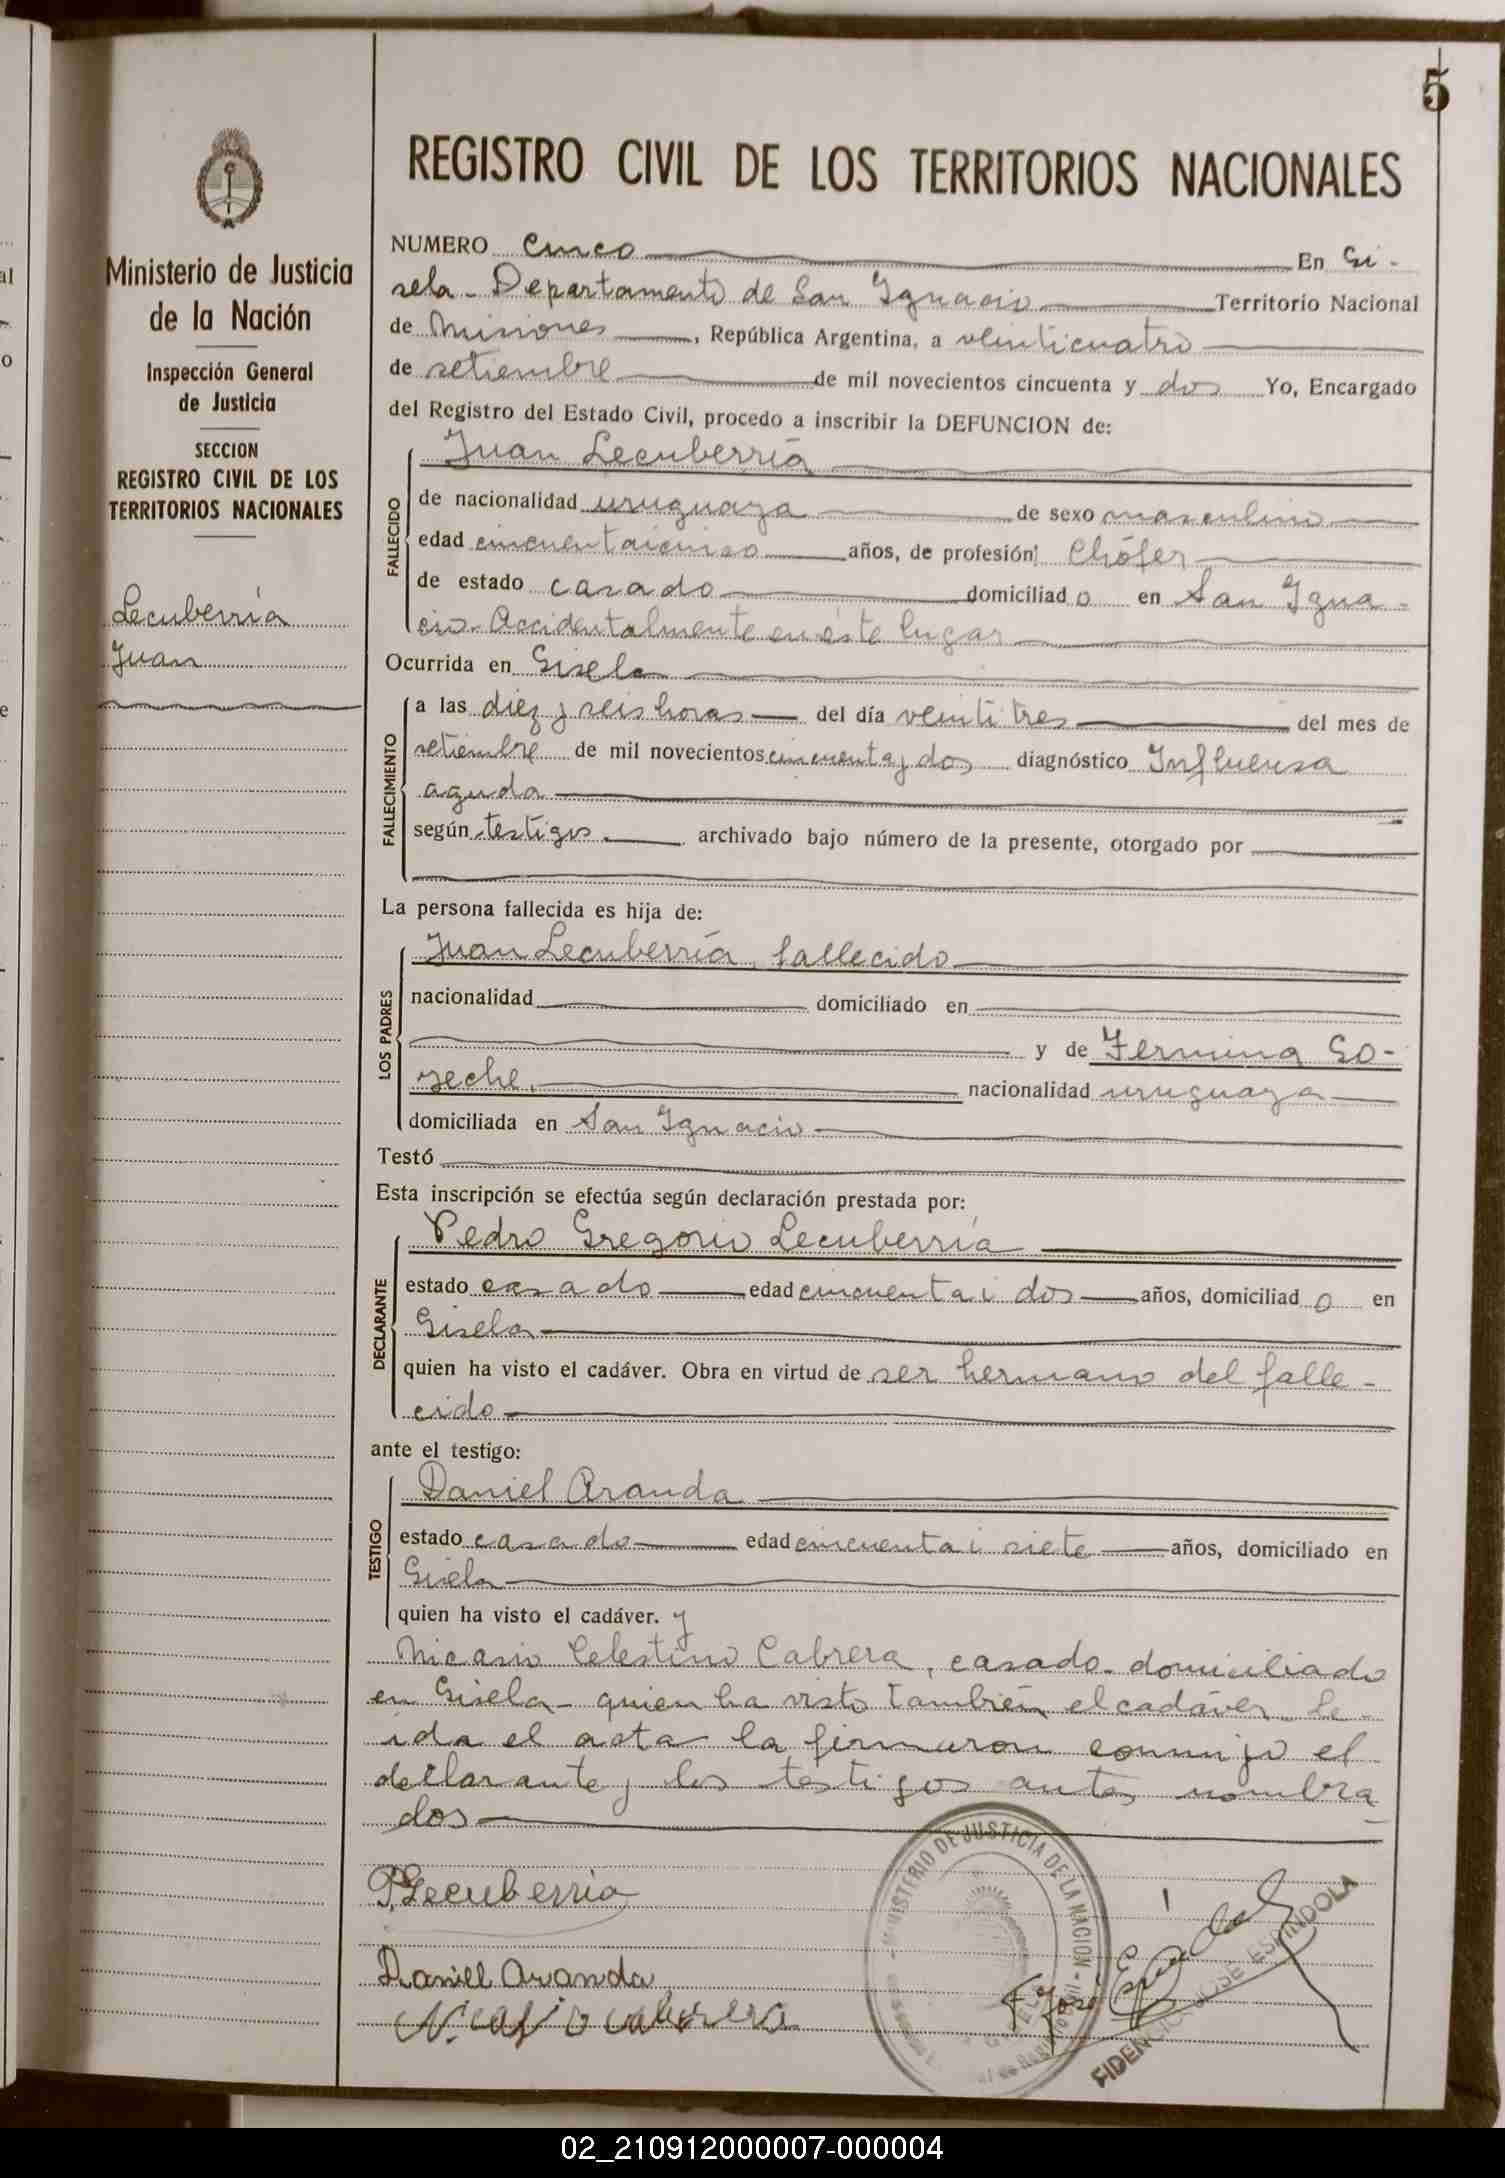 5
REGISTRO CIVIL DE LOS TERRITORIOS NACIONALES
Ministerio de Justicia
de la Nación
Inspección General
de Justicia
SECCION
REGISTRO CIVIL DE LOS
TERRITORIOS NACIONALES
Lecuberría
Juan
NUMERO cinco En Gi-
sela - Departamento de San Ignacio Territorio Nacional
de Misiones, República Argentina, a veinticuatro
de setiembre de mil novecientos cincuenta y dos Yo, Encargado
del Registro del Estado Civil, procedo a inscribir la DEFUNCION de:
Juan Lecuberría
FALLECIDO
de nacionalidad uruguaya de sexo masculino
edad cincuentaicinco años, de profesión Chófer
de estado casado domiciliado en San Igna-
cio. Accidentalmente en éste lugar
Ocurrida en Gisela
FALLECIMIENTO
a las diez y seis horas del día veintitres del mes de
setiembre de mil novecientos cincuenta y dos diagnóstico Influensa
aguda
según testigos. archivado bajo número de la presente, otorgado por
La persona fallecida es hija de:
LOS PADRES
Juan Lecuberría, fallecido
nacionalidad domiciliado en
y de Fermina Go-
yeche. nacionalidad uruguaya
domiciliada en San Ignacio
Testó
Esta inscripción se efectúa según declaración prestada por:
DECLARANTE
Pedro Gregorio Lecuberría
estado casado edad cincuenta i dos años, domiciliado en
Gisela
quien ha visto el cadáver. Obra en virtud de ser hermano del falle-
cido
ante el testigo:
TESTIGO
Daniel Aranda
estado casado edad cincuenta i siete años, domiciliado en
Gisela
quien ha visto el cadáver. y
Nicasio Celestino Cabrera, casado - domiciliado
en Gisela - quien ha visto también el cadáver. Le-
ida el acta la firmaron conmigo el
declarante y los testigos antes nombra-
dos
P. G. Lecuberria
Daniel Aranda
Nicasio Cabrera
MINISTERIO DE JUSTICIA DE LA NACION
F. José Espíndola
FIDENCIO JOSE ESPINDOLA
02_210912000007-000004